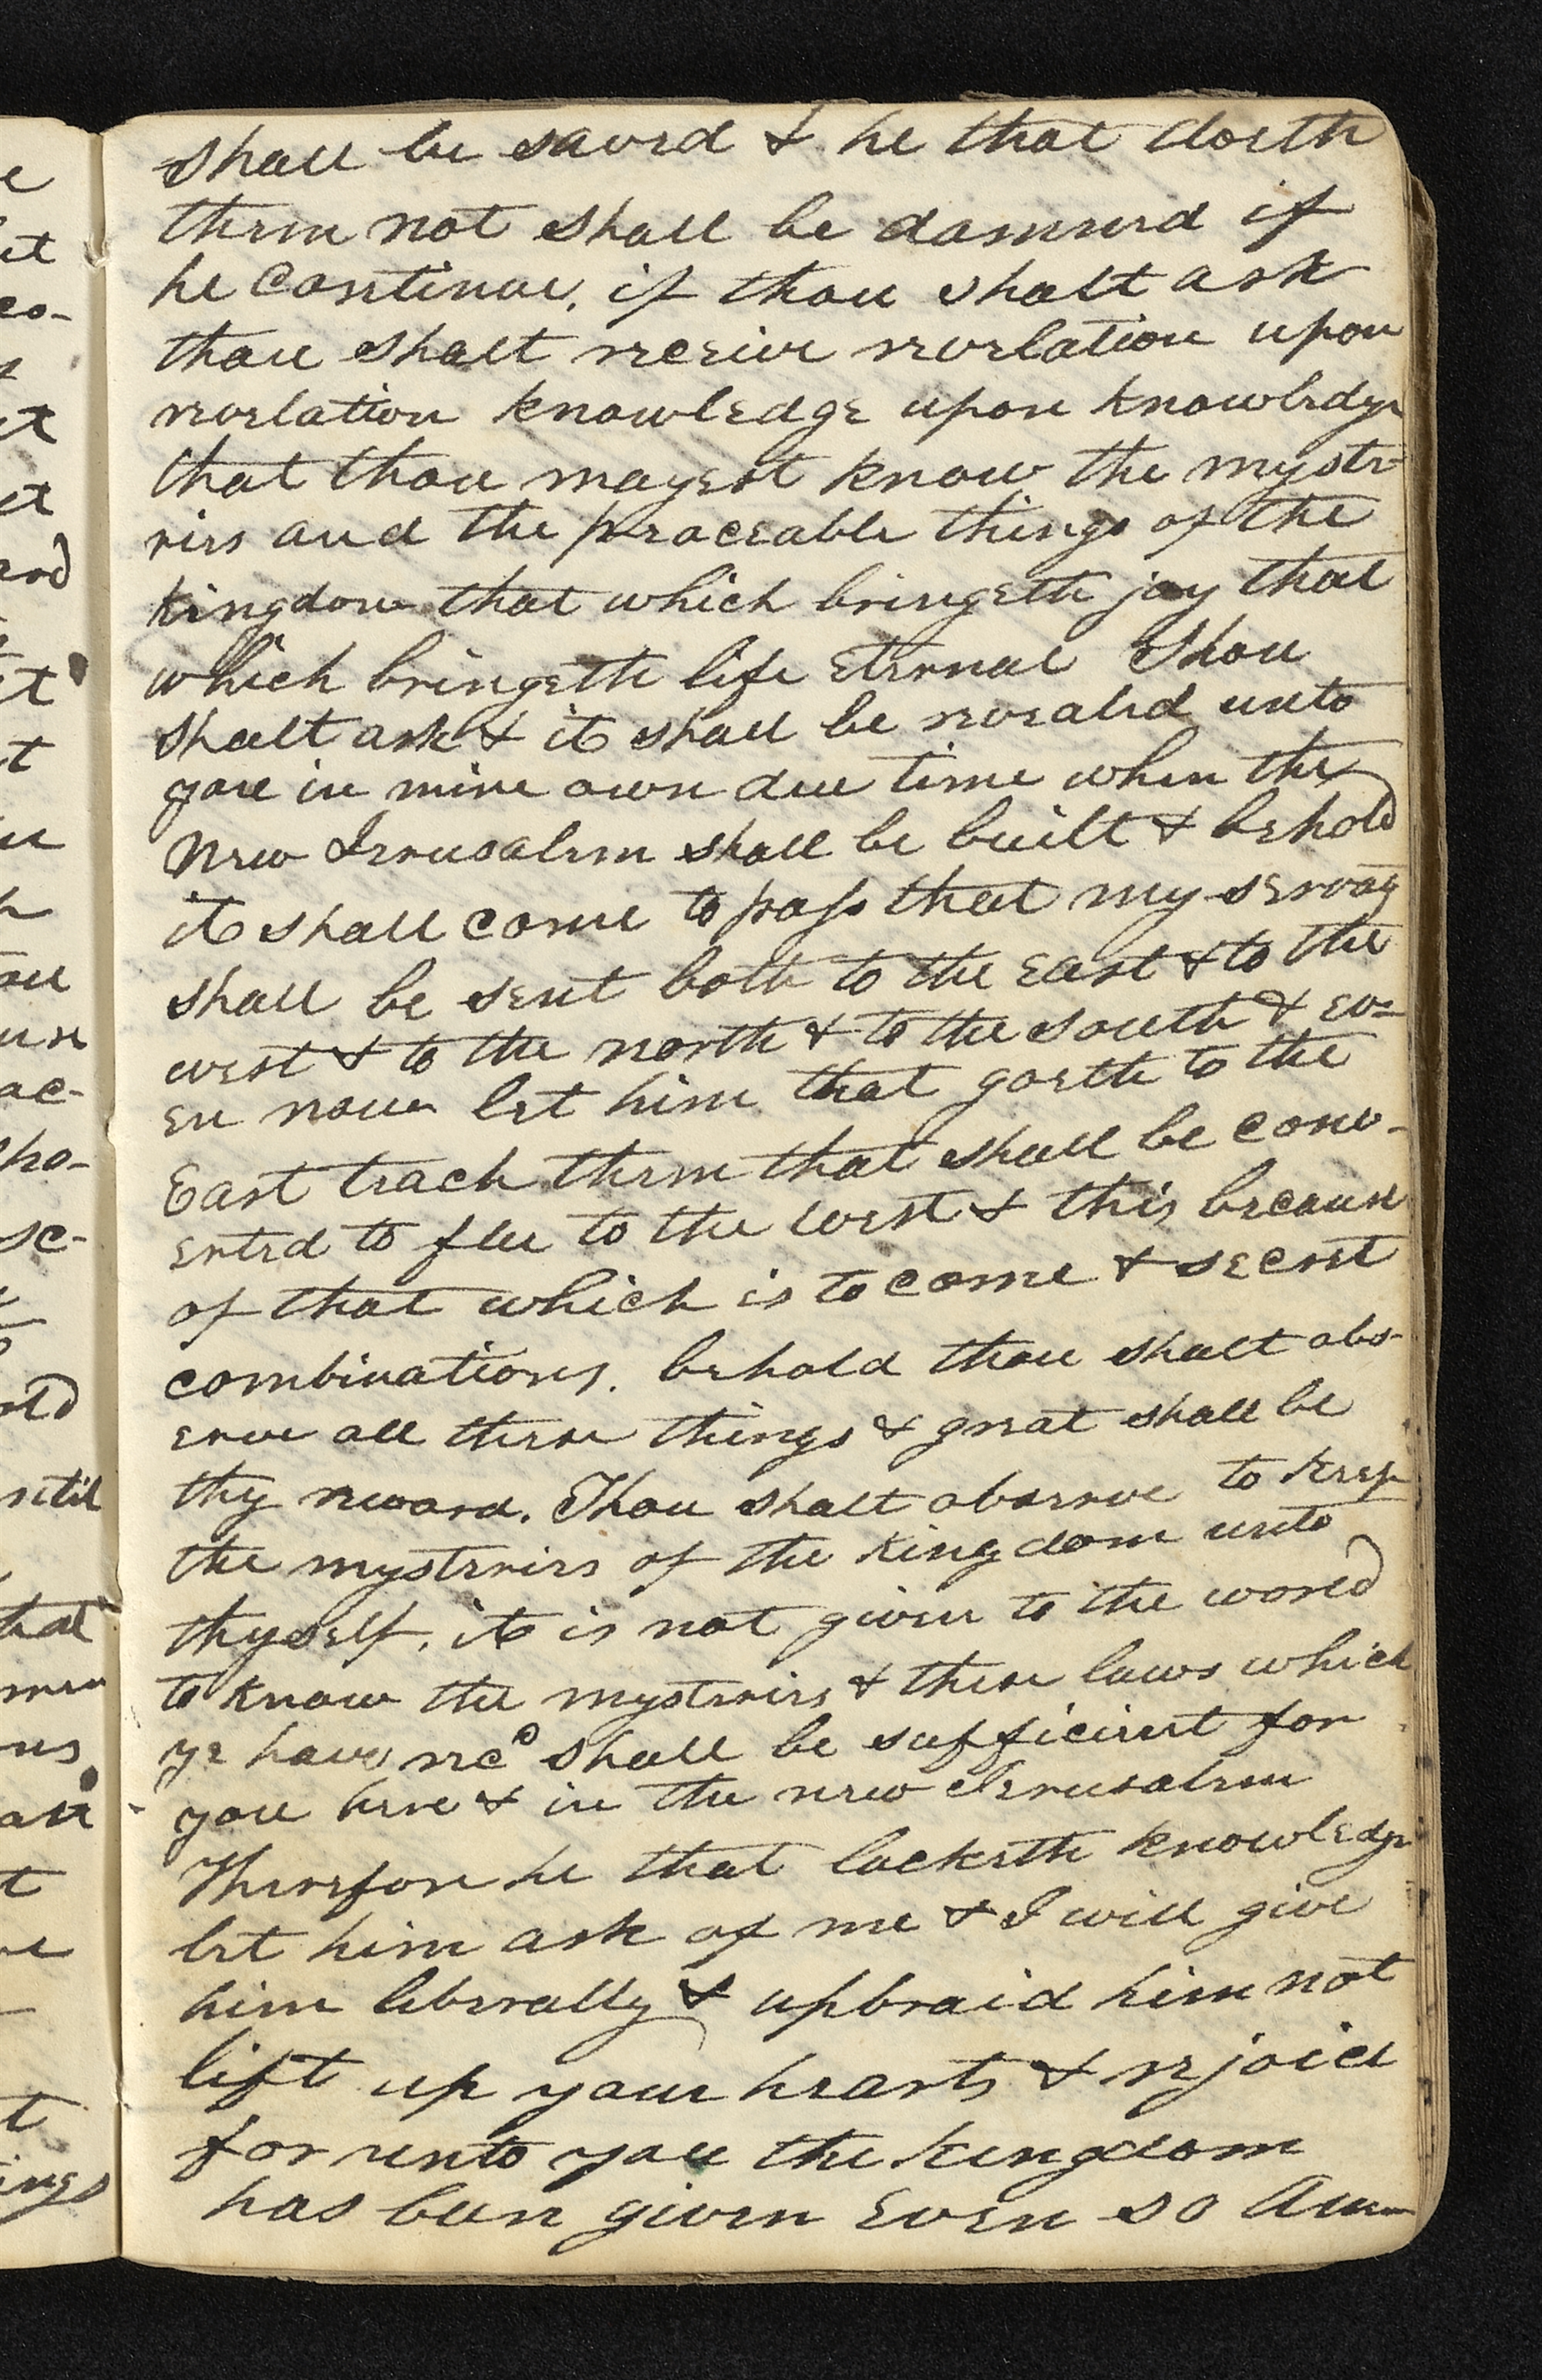 shall be saved & he that doeth
them not shall be damned if
he continue, if thou shalt ask
thou shalt receive revelation upon
revelation knowledge upon knowledge
that thou mayest know the myste-
ries and the peaceable things of the
kingdom that which bringeth joy that
which bringeth life eternal Thou
shalt ask & it shall be revealed unto
you in mine own due time when the
New Jerusalem shall be built & behold
it shall come to pass that my
shall be sent both to the east & to the
west & to the north & to the south & ev=
en now let him that goeth to the
East teach them that shall be conv-
erted to flee to the west & this because
of that which is to come & secret
combinations. behold thou shalt obs-
erve all these things & great shall be
thy reward. Thou shalt observe to keep
the mysteries of the kingdom unto
thyself, it is not given to the world
to know the mysteries & these laws which
ye have recd shall be sufficient for
you here & in the new Jerusalem
Therefore he that lacketh knowledge
let him ask of me & I will give
him liberally & upbraid him not
lift up your hearts & rejoice
for unto you the kingdom
has been given Even so